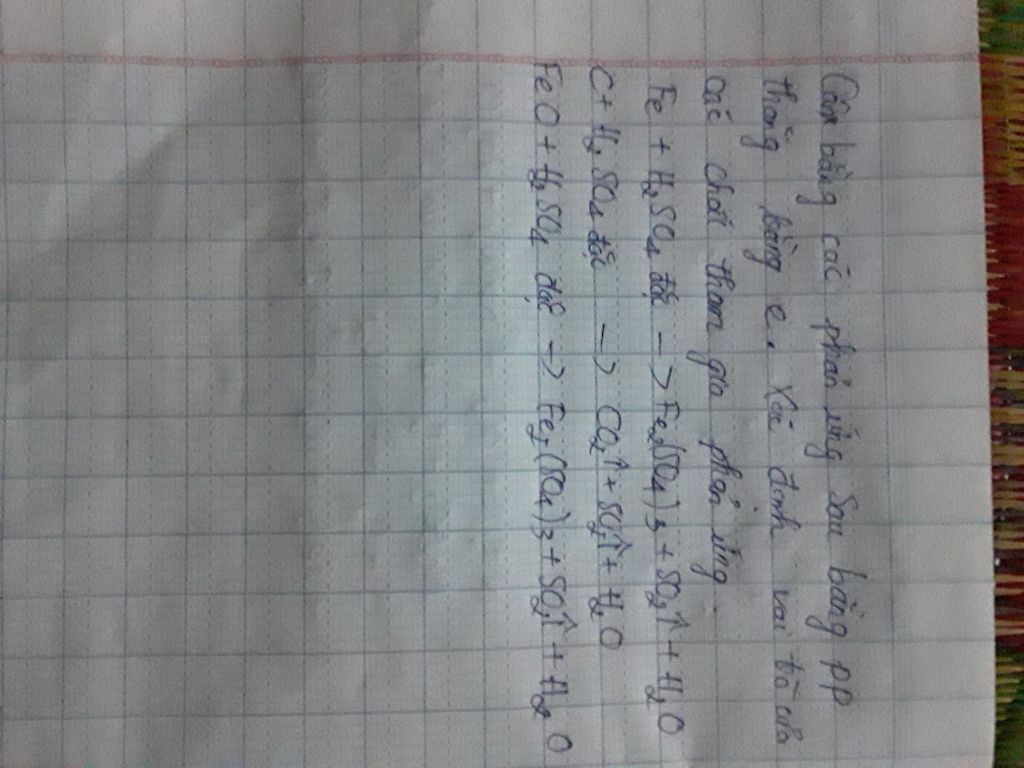 Cân bằng các phản ứng sau bằng pp
thăng bằng e. Xác định vai trò của
các chất tham gia phản ứng
Fe + H₂SO₄ đặc —> Fe₂(SO₄)₃ + SO₂↑ + H₂O
C + H₂SO₄ đặc —> CO₂↑ + SO₂↑ + H₂O
FeO + H₂SO₄ đặc —> Fe₂(SO₄)₃ + SO₂↑ + H₂O